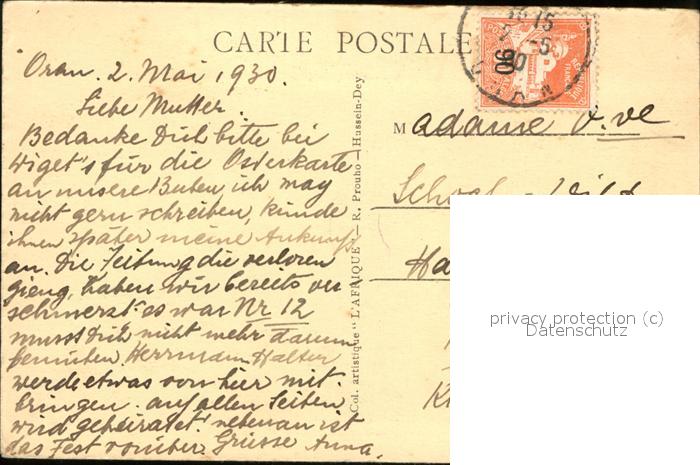 CARTE POSTALE
Oran. 2. Mai 1930.
Liebe Mutter.
Bedanke Dich bitte bei
Wiget's für die Osterkarte
an unsere Buben, ich mag
nicht gern schreiben, künde
ihnen später meine Ankunft
an. Die Zeitung die verloren
gieng, haben wir bereits ver
schmerzt. es war Nr 12
musst Dich nicht mehr darum
bemühen. Herrmann Halter
werde etwas von hier mit-
bringen. auf allen Seiten
wird geheiratet! nebenan ist
das Fest vorüber. Grüsse Anna.
Col. artistique "L'AFRIQUE" — R. Prouho — Hussein-Dey
Madame V.ve
Ha
privacy protection (c)
Datenschutz